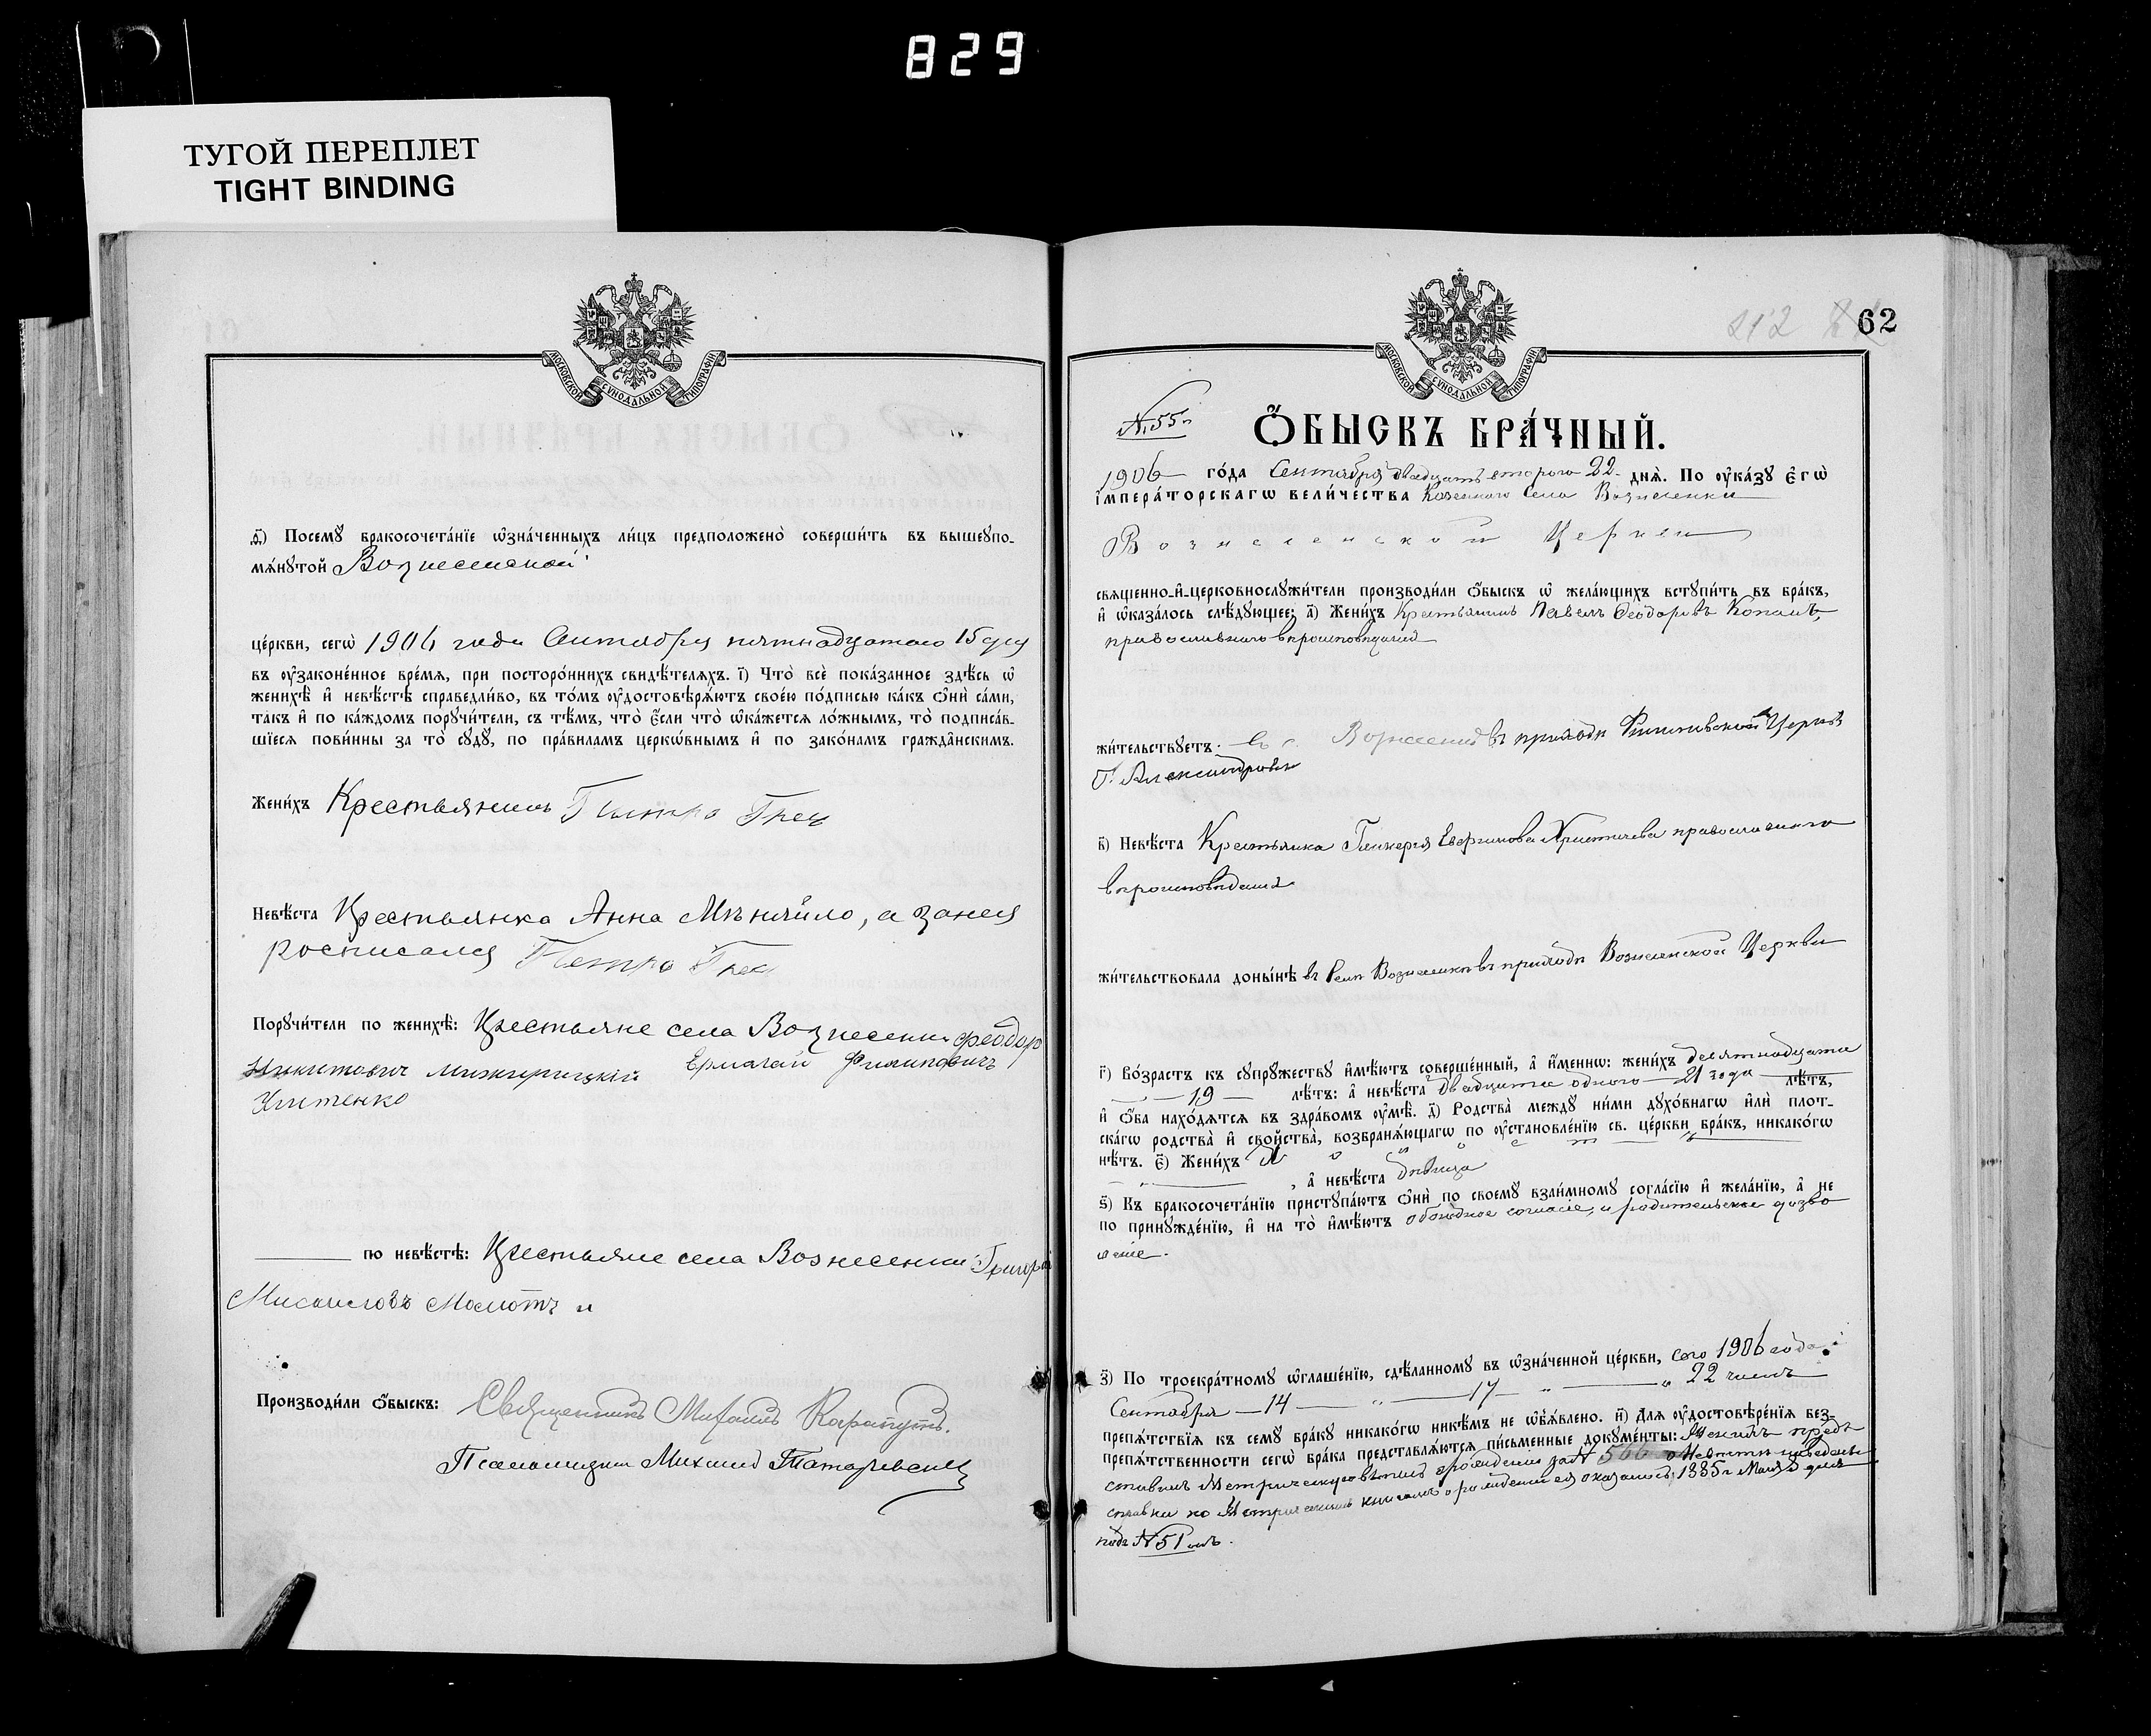 829
ТУГОЙ ПЕРЕПЛЕТ
TIGHT BINDING
МОСКОВСКОЙ СѴНОДАЛЬНОЙ ТИПОГРАФІИ
ѳ҃) Посемꙋ̀ бракосочета́нїе ѡ҆зна́ченныхъ ли́цъ предположено̀ соверши́ть въ вышеꙋпо-
мѧ́нꙋтой Вознесенской
це́ркви, сегѡ̀ 1906 года Сентября пятнадцатаго 15 дня
въ ᲂу҆законе́нное вре́мѧ, при посторо́ннихъ свидѣ́телѧхъ. і҃) Что̀ всѐ пока́занное здѣ́сь ѡ҆
женихѣ̀ и҆ невѣ́стѣ справедли́во, въ то́мъ ᲂу҆достовѣрѧ́ютъ свое́ю по́дписью ка́къ ѻ҆нѝ са́ми,
та́къ и҆ по ка́ждомъ порꙋчи́тели, съ тѣ́мъ, что̀ є҆́сли что̀ ѡ҆ка́жетсѧ ло́жнымъ, то̀ подписа́в-
шїесѧ пови́нны за то̀ сꙋдꙋ̀, по пра́виламъ церкѡ́внымъ и҆ по зако́намъ гражда́нскимъ.
Жени́хъ Крестьянинъ Петро Грек
Невѣ́ста Крестьянка Анна Мѣняйло, а за нея
росписался Петро Грек
Порꙋчи́тели по женихѣ̀: Крестьяне села Вознесенки Феодор
Никитович Межирицкій Ермолай Филипович
Ищенко
по невѣ́стѣ: Крестьяне села Вознесенки: Григорій
Молотъ и
Производи́ли ѻ҆́быскъ: Священникъ Михаилъ
Псаломщикъ Михаил
МОСКОВСКОЙ СѴНОДАЛЬНОЙ ТИПОГРАФІИ
212 62
№ 55
Ѻ҆́БЫСКЪ БРА́ЧНЫЙ.
1906 го́да Сентября двадцать второго 22 днѧ̀. По ᲂу҆ка́зꙋ є҆гѡ̀
і҆мпера́торскагѡ вели́чества Казеннаго Села Вознесенки
Вознесенской Церкви
свѧще́нно-и҆-церковнослꙋжи́тели производи́ли ѻ҆́быскъ ѡ҆ жела́ющихъ встꙋпи́ть въ бра́къ,
и҆ ѡ҆каза́лось слѣ́дꙋющее: а҃) Жени́хъ Крестьянинъ Павелъ Феодоровъ Копаль,
православнаго вѣроисповѣданія
жи́тельствꙋетъ: въ с. Вознесенкѣ въ приходѣ Церкви
Г. Александровкѣ
в҃) Невѣ́ста Крестьянка Гликерія Евфимова православнаго
вѣроисповѣданія
жи́тельствовала доны́нѣ въ Селѣ Вознесенкѣ въ приходѣ Вознесенской Церкви
г҃) Во́зрастъ къ сꙋпрꙋ́жествꙋ и҆мѣ́ютъ соверше́нный, а҆ и҆́меннѡ: жени́хъ девятнадцати
19 лѣ́тъ: а҆ невѣ́ста двадцати одного 21 года лѣ́тъ,
и҆ ѻ҆́ба нахо́дѧтсѧ въ здра́вомъ ᲂу҆мѣ̀. д҃) Родства̀ междꙋ̀ ни́ми дꙋхо́внагѡ и҆лѝ плот-
ска́гѡ родства̀ и҆ сво́йства, возбранѧ́ющагѡ по ᲂу҆становле́нїю св. це́ркви бра́къ, никако́гѡ
нѣ́тъ. є҃) Жени́хъ холостъ
, а҆ невѣ́ста дѣвица
ѕ҃) Къ бракосочета́нїю пристꙋпа́ютъ ѻ҆нѝ по своемꙋ̀ взаи́мномꙋ согла́сїю и҆ жела́нїю, а҆ не
по принꙋжде́нїю, и҆ на то̀ и҆мѣ́ютъ обоюдное согласіе, и родительское дозво
леніе.
з҃) По троекра́тномꙋ ѡ҆глаше́нїю, сдѣ́ланномꙋ въ ѡ҆зна́ченной це́ркви, сего 1906 года
Сентября 14 " 17 " " 22 числъ
препѧ́тствїѧ къ семꙋ̀ бра́кꙋ никако́гѡ никѣ́мъ не ѡ҆б̾ѧ́влено. и҃) Длѧ ᲂу҆достовѣре́нїѧ без-
препѧ́тственности сегѡ̀ бра́ка представлѧ́ютсѧ пи́сьменные докꙋме́нты: Женихъ пред
ставилъ Метрическую о рожденіи за № 566 о Невѣстѣ
справки по Метрическимъ книгамъ о рожденіи ея оказалось 1885 г. Мая дня
подъ № 51 мъ.